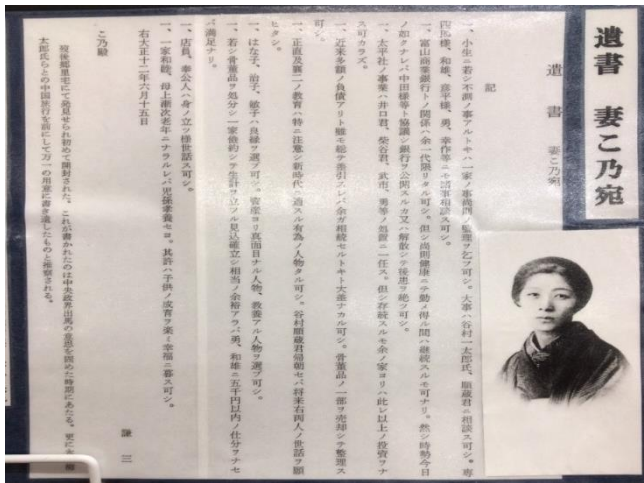 遺書 妻こ乃宛
遺書 妻こ乃宛
記
一、小生ニ若シ不測ノ事アルトキハ一家ノ事尚則ノ監理ヲ乞フ可シ。大事ハ谷村一太郎氏、順蔵君ニ相談ス可シ。専
四郎様、和雄、彦平様、勇、幸作等ニモ諸事相談ス可シ。
一、富山商業銀行トノ関係ハ余一代限リタル可シ。但シ尚則健康ニテ動メ得ル間ハ継続スルモ可ナリ。然シ時勢今日
ノ如クナレバ中田様等ト協議シ銀行ヲ公開スルカ又ハ解散シテ後患ヲ絶ツ可シ。
一、太平社ノ事業ハ井口君、柴谷君、武市、勇等ノ処置ニ一任ス。但シ存続スルモ余ノ家ヨリハ此レ以上ノ投資ヲナ
ス可カラズ。
一、近来多額ノ負債アリト雖モ総テ差引スレバ余ガ相続セルトキト大差ナカル可シ。骨董品ノ一部ヲ売却シテ整理ス
可シ。
一、正直及襄二ノ教育ハ特ニ注意シ新時代ニ適スル有為ノ人物タル可シ。谷村順蔵君帰朝セバ将来右両人ノ世話ヲ願
ヒタシ。
一、はな子、治子、敏子ハ良縁ヲ選ブ可シ。資産ヨリ真面目ナル人物、教養アル人物ヲ選ブ可シ。
一、若シ骨董品ヲ処分シ一家倹約シテ生計ヲ立ツル見込確立シ相当ノ余裕アラバ勇、和雄ニ五千円以内ノ仕分ヲナセ
バ満足ナリ。
一、店員、奉公人ハ身ノ立ツ様世話ス可シ。
一、一家和睦、母上漸次老年ニナラルレバ児孫孝養セヨ。其許ハ子供ノ成育ヲ楽ミ幸福ニ暮ス可シ。
右大正十二年六月十五日
謙三
こ乃殿
没後郷里宅にて発見せられ初めて開封された。これが書かれたのは中央政界出馬の意思を固めた時期にあたる。更に
太郎氏らとの中国旅行を前にして万一の用意に書き遺したものと推察される。